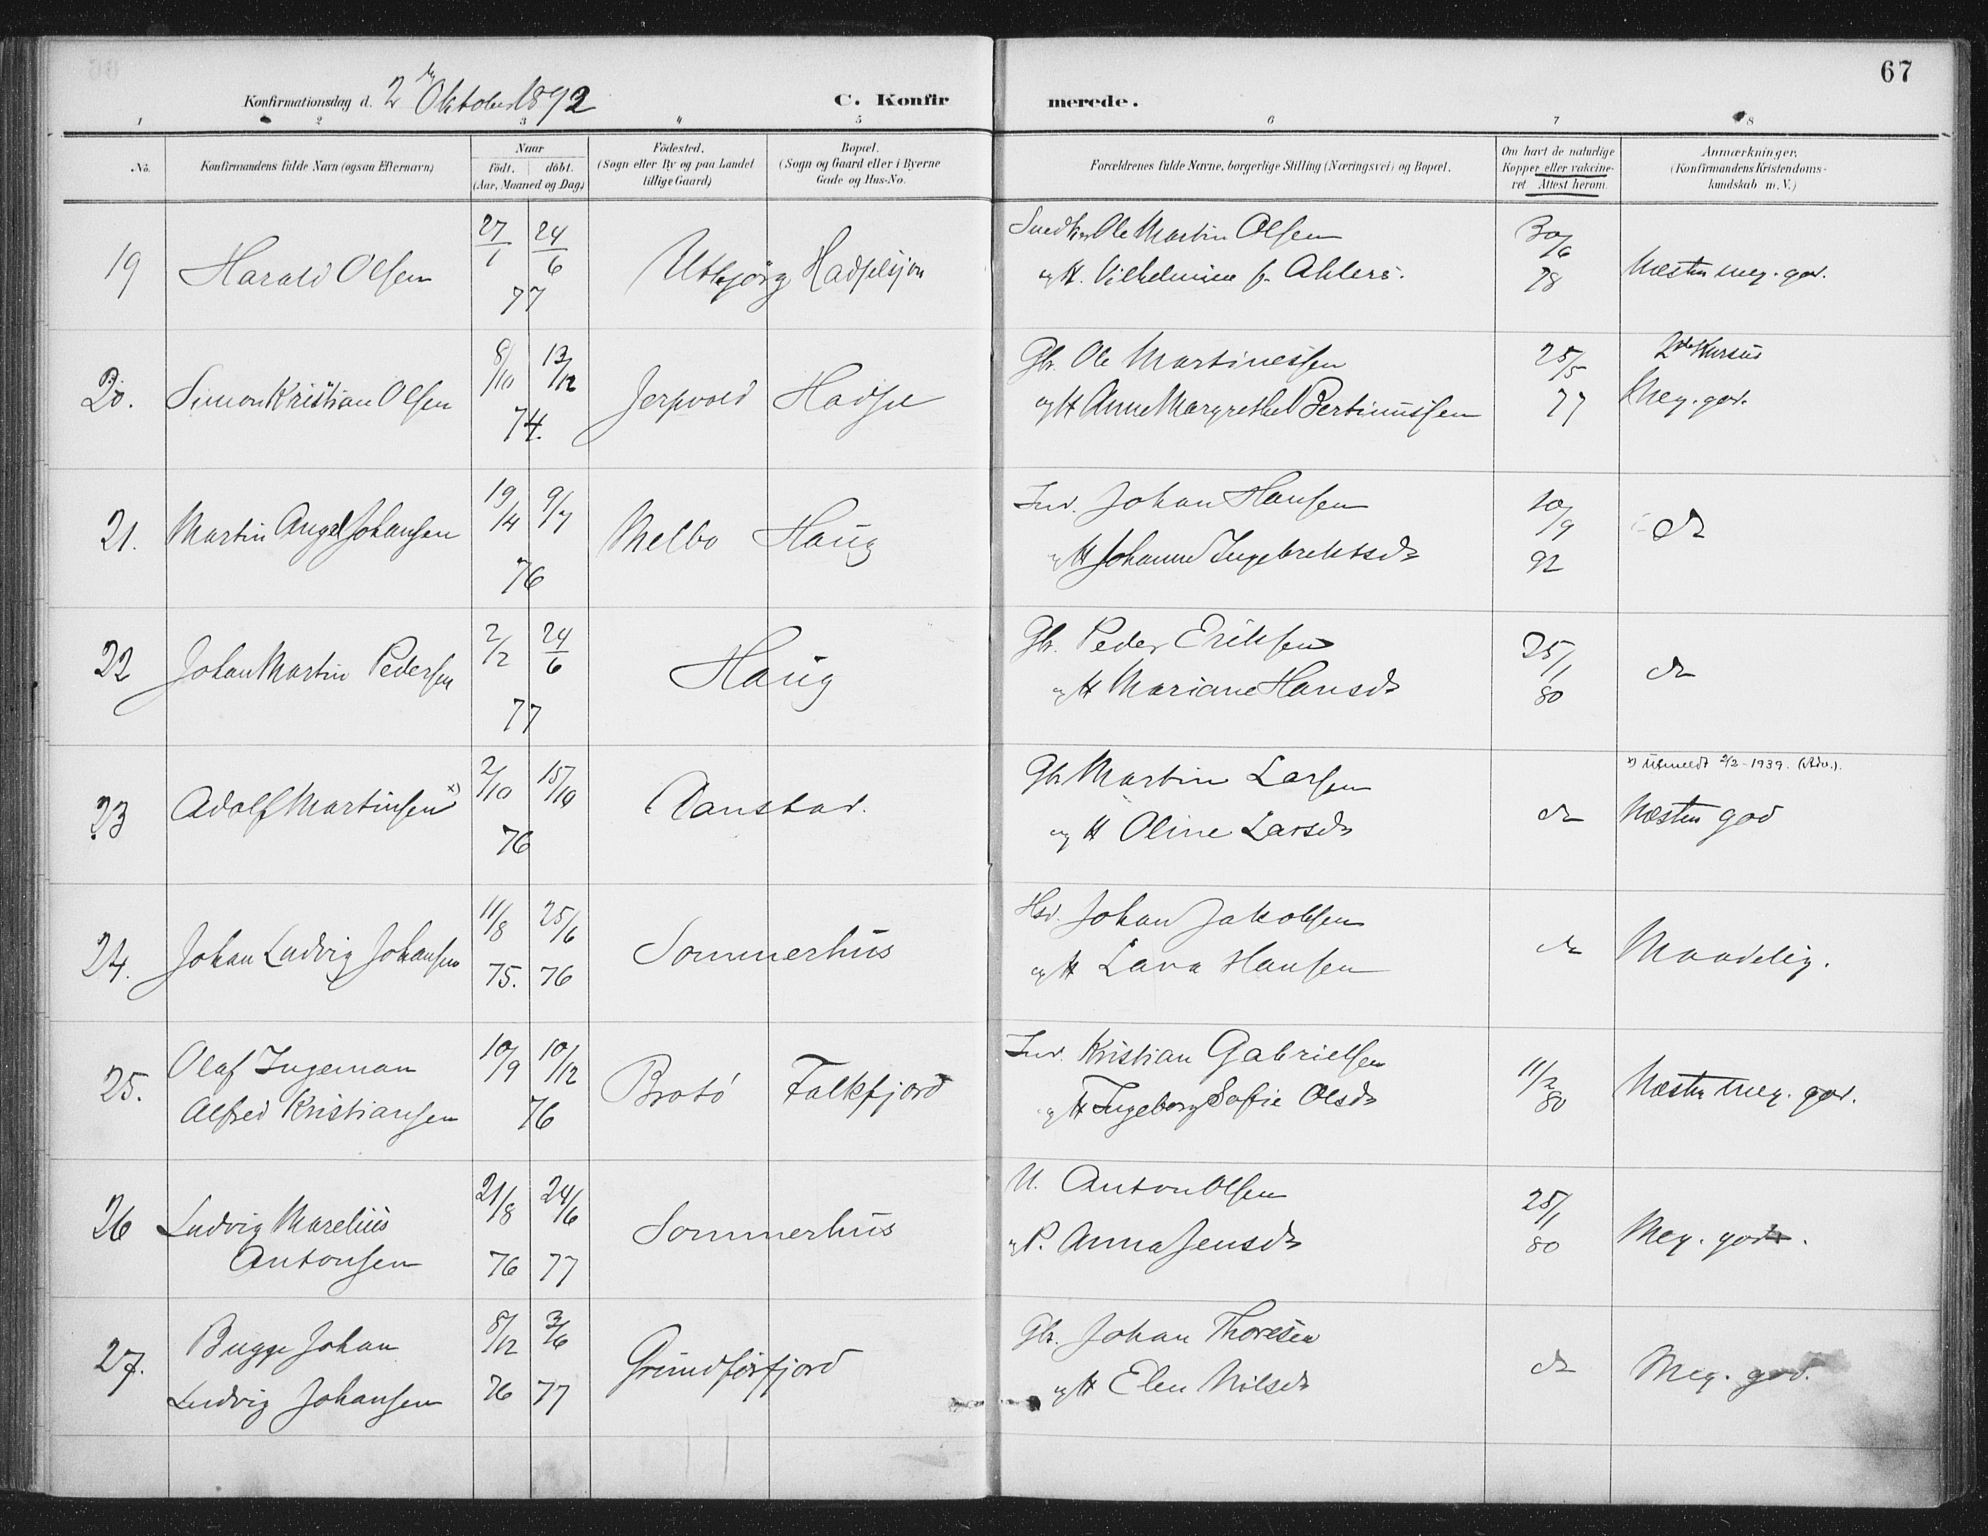 67
Konfirmationsdag d. 2 Oktober 1892
C. Konfirmerede.
1 2 3 4 5 6 7 8
No.
Konfirmandens fulde Navn (ogsaa Efternavn)
Naar
födt. döbt.
(Aar, Maaned og Dag)
Födested.
(Sogn eller By og paa Landet
tillige Gaard)
Bopæl.
(Sogn og Gaard eller i Byerne
Gade og Hus-No.
Forældrenes fulde Navne, borgerlige Stilling (Næringsvei) og Bopæl.
Om havt de naturlige
Kopper eller vakcine-
ret Attest herom.
Anmærkninger,
(Konfirmandens Kristendoms-
kundskab m. V.)
19 Harald Olsen 27/1 24/6 77 Hadselsjøn
Snedker Ole Martin Olsen
og H. Vilhelmine f. Ahlers.
30/6 78
Næsten meg. god.
20. Simon Kristian Olsen 8/10 13/12 74. Jerpvold Hadsel
Gbr. Ole Martinessen
og H Anne Margrethe Bertinussen
25/5 77
2det Kursus
Meg. god.
21. Martin Angel Johansen 19/4 9/7 76 Melbo Haug
Ind. Johan Hansen
og H Johanne Ingebrektsdr
10/9 92
dr
22 Johan Martin Pedersen 2/2 24/6 77 Haug
Gbr. Peder Eriksen
og H Mariane Hansdr
25/1 80
do
23 Adolf Martinsen x) 2/10 15/10 76 Aanstad.
Gbr Martin Larsen
og H Oline Larsdr
do
x) Utmeldt 2/2-1939. (Adv.).
Næsten god
24. Johan Ludvig Johansen 11/8 75. 25/6 76 Sommerhus
Hsd. Johan Jakobsen
og H Lava Hansen
do
Maadelig.
25. Olaf Ingeman
Alfred Kristiansen 10/9 10/12 76 Brotö Falkfjord
Ind. Kristian Gabrielsen
og H Ingeborg Sofie Olsdr
11/2 80
Næsten meg. god.
26 Ludvig Marelius
Antonsen 21/8 76 24/6 77 Sommerhus
U. Anton Olsen
og P. Anna Jensdr
25/1 80
Meg. god.
27. Bugge Johan
Ludvig Johansen 8/12 76 3/6 77 Grundforfjord
Gbr. Johan Thoresen
og H Elen Nilsdr
do
Meg. god.